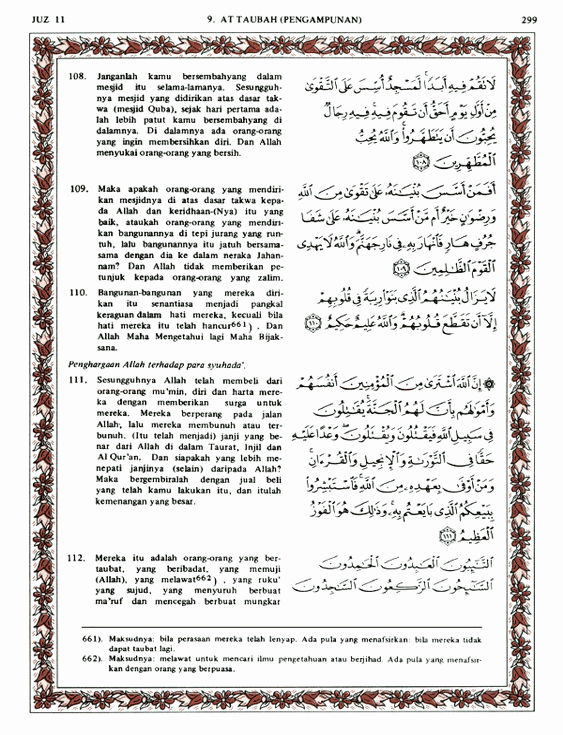 JUZ 11
9. AT TAUBAH (PENGAMPUNAN)
299
108. Janganlah kamu bersembahyang dalam
mesjid itu selama-lamanya. Sesungguh-
nya mesjid yang didirikan atas dasar tak-
wa (mesjid Quba), sejak hari pertama ada-
lah lebih patut kamu bersembahyang di
dalamnya. Di dalamnya ada orang-orang
yang ingin membersihkan diri. Dan Allah
menyukai orang-orang yang bersih.
لَا تَقُمْ فِيهِ أَبَدًا ۚ لَّمَسْجِدٌ أُسِّسَ عَلَى التَّقْوَىٰ
مِنْ أَوَّلِ يَوْمٍ أَحَقُّ أَن تَقُومَ فِيهِ ۚ فِيهِ رِجَالٌ
يُحِبُّونَ أَن يَتَطَهَّرُوا ۚ وَاللَّهُ يُحِبُّ
الْمُطَّهِّرِينَ ١٠٨
109. Maka apakah orang-orang yang mendiri-
kan mesjidnya di atas dasar takwa kepa-
da Allah dan keridhaan-(Nya) itu yang
baik, ataukah orang-orang yang mendiri-
kan bangunannya di tepi jurang yang run-
tuh, lalu bangunannya itu jatuh bersama-
sama dengan dia ke dalam neraka Jahan-
nam? Dan Allah tidak memberikan pe-
tunjuk kepada orang-orang yang zalim.
أَفَمَنْ أَسَّسَ بُنْيَانَهُ عَلَىٰ تَقْوَىٰ مِنَ اللَّهِ
وَرِضْوَانٍ خَيْرٌ أَم مَّنْ أَسَّسَ بُنْيَانَهُ عَلَىٰ شَفَا
جُرُفٍ هَارٍ فَانْهَارَ بِهِ فِي نَارِ جَهَنَّمَ ۗ وَاللَّهُ لَا يَهْدِي
الْقَوْمَ الظَّالِمِينَ ١٠٩
110. Bangunan-bangunan yang mereka diri-
kan itu senantiasa menjadi pangkal
keraguan dalam hati mereka, kecuali bila
hati mereka itu telah hancur661) . Dan
Allah Maha Mengetahui lagi Maha Bijak-
sana.
لَا يَزَالُ بُنْيَانُهُمُ الَّذِي بَنَوْا رِيبَةً فِي قُلُوبِهِمْ
إِلَّا أَن تَقَطَّعَ قُلُوبُهُمْ ۗ وَاللَّهُ عَلِيمٌ حَكِيمٌ ١١٠
Penghargaan Allah terhadap para syuhada'.
111. Sesungguhnya Allah telah membeli dari
orang-orang mu'min, diri dan harta mere-
ka dengan memberikan surga untuk
mereka. Mereka berperang pada jalan
Allah, lalu mereka membunuh atau ter-
bunuh. (Itu telah menjadi) janji yang be-
nar dari Allah di dalam Taurat, Injil dan
Al Qur'an. Dan siapakah yang lebih me-
nepati janjinya (selain) daripada Allah?
Maka bergembiralah dengan jual beli
yang telah kamu lakukan itu, dan itulah
kemenangan yang besar.
۞ إِنَّ اللَّهَ اشْتَرَىٰ مِنَ الْمُؤْمِنِينَ أَنفُسَهُمْ
وَأَمْوَالَهُم بِأَنَّ لَهُمُ الْجَنَّةَ ۚ يُقَاتِلُونَ
فِي سَبِيلِ اللَّهِ فَيَقْتُلُونَ وَيُقْتَلُونَ ۖ وَعْدًا عَلَيْهِ
حَقًّا فِي التَّوْرَاةِ وَالْإِنجِيلِ وَالْقُرْآنِ ۚ
وَمَنْ أَوْفَىٰ بِعَهْدِهِ مِنَ اللَّهِ ۚ فَاسْتَبْشِرُوا
بِبَيْعِكُمُ الَّذِي بَايَعْتُم بِهِ ۚ وَذَٰلِكَ هُوَ الْفَوْزُ
الْعَظِيمُ ١١١
112. Mereka itu adalah orang-orang yang ber-
taubat, yang beribadat, yang memuji
(Allah), yang melawat662) , yang ruku'
yang sujud, yang menyuruh berbuat
ma'ruf dan mencegah berbuat mungkar
التَّائِبُونَ الْعَابِدُونَ الْحَامِدُونَ
السَّائِحُونَ الرَّاكِعُونَ السَّاجِدُونَ
661). Maksudnya: bila perasaan mereka telah lenyap. Ada pula yang menafsirkan: bila mereka tidak
dapat taubat lagi.
662). Maksudnya: melawat untuk mencari ilmu pengetahuan atau berjihad. Ada pula yang menafsir-
kan dengan orang yang berpuasa.